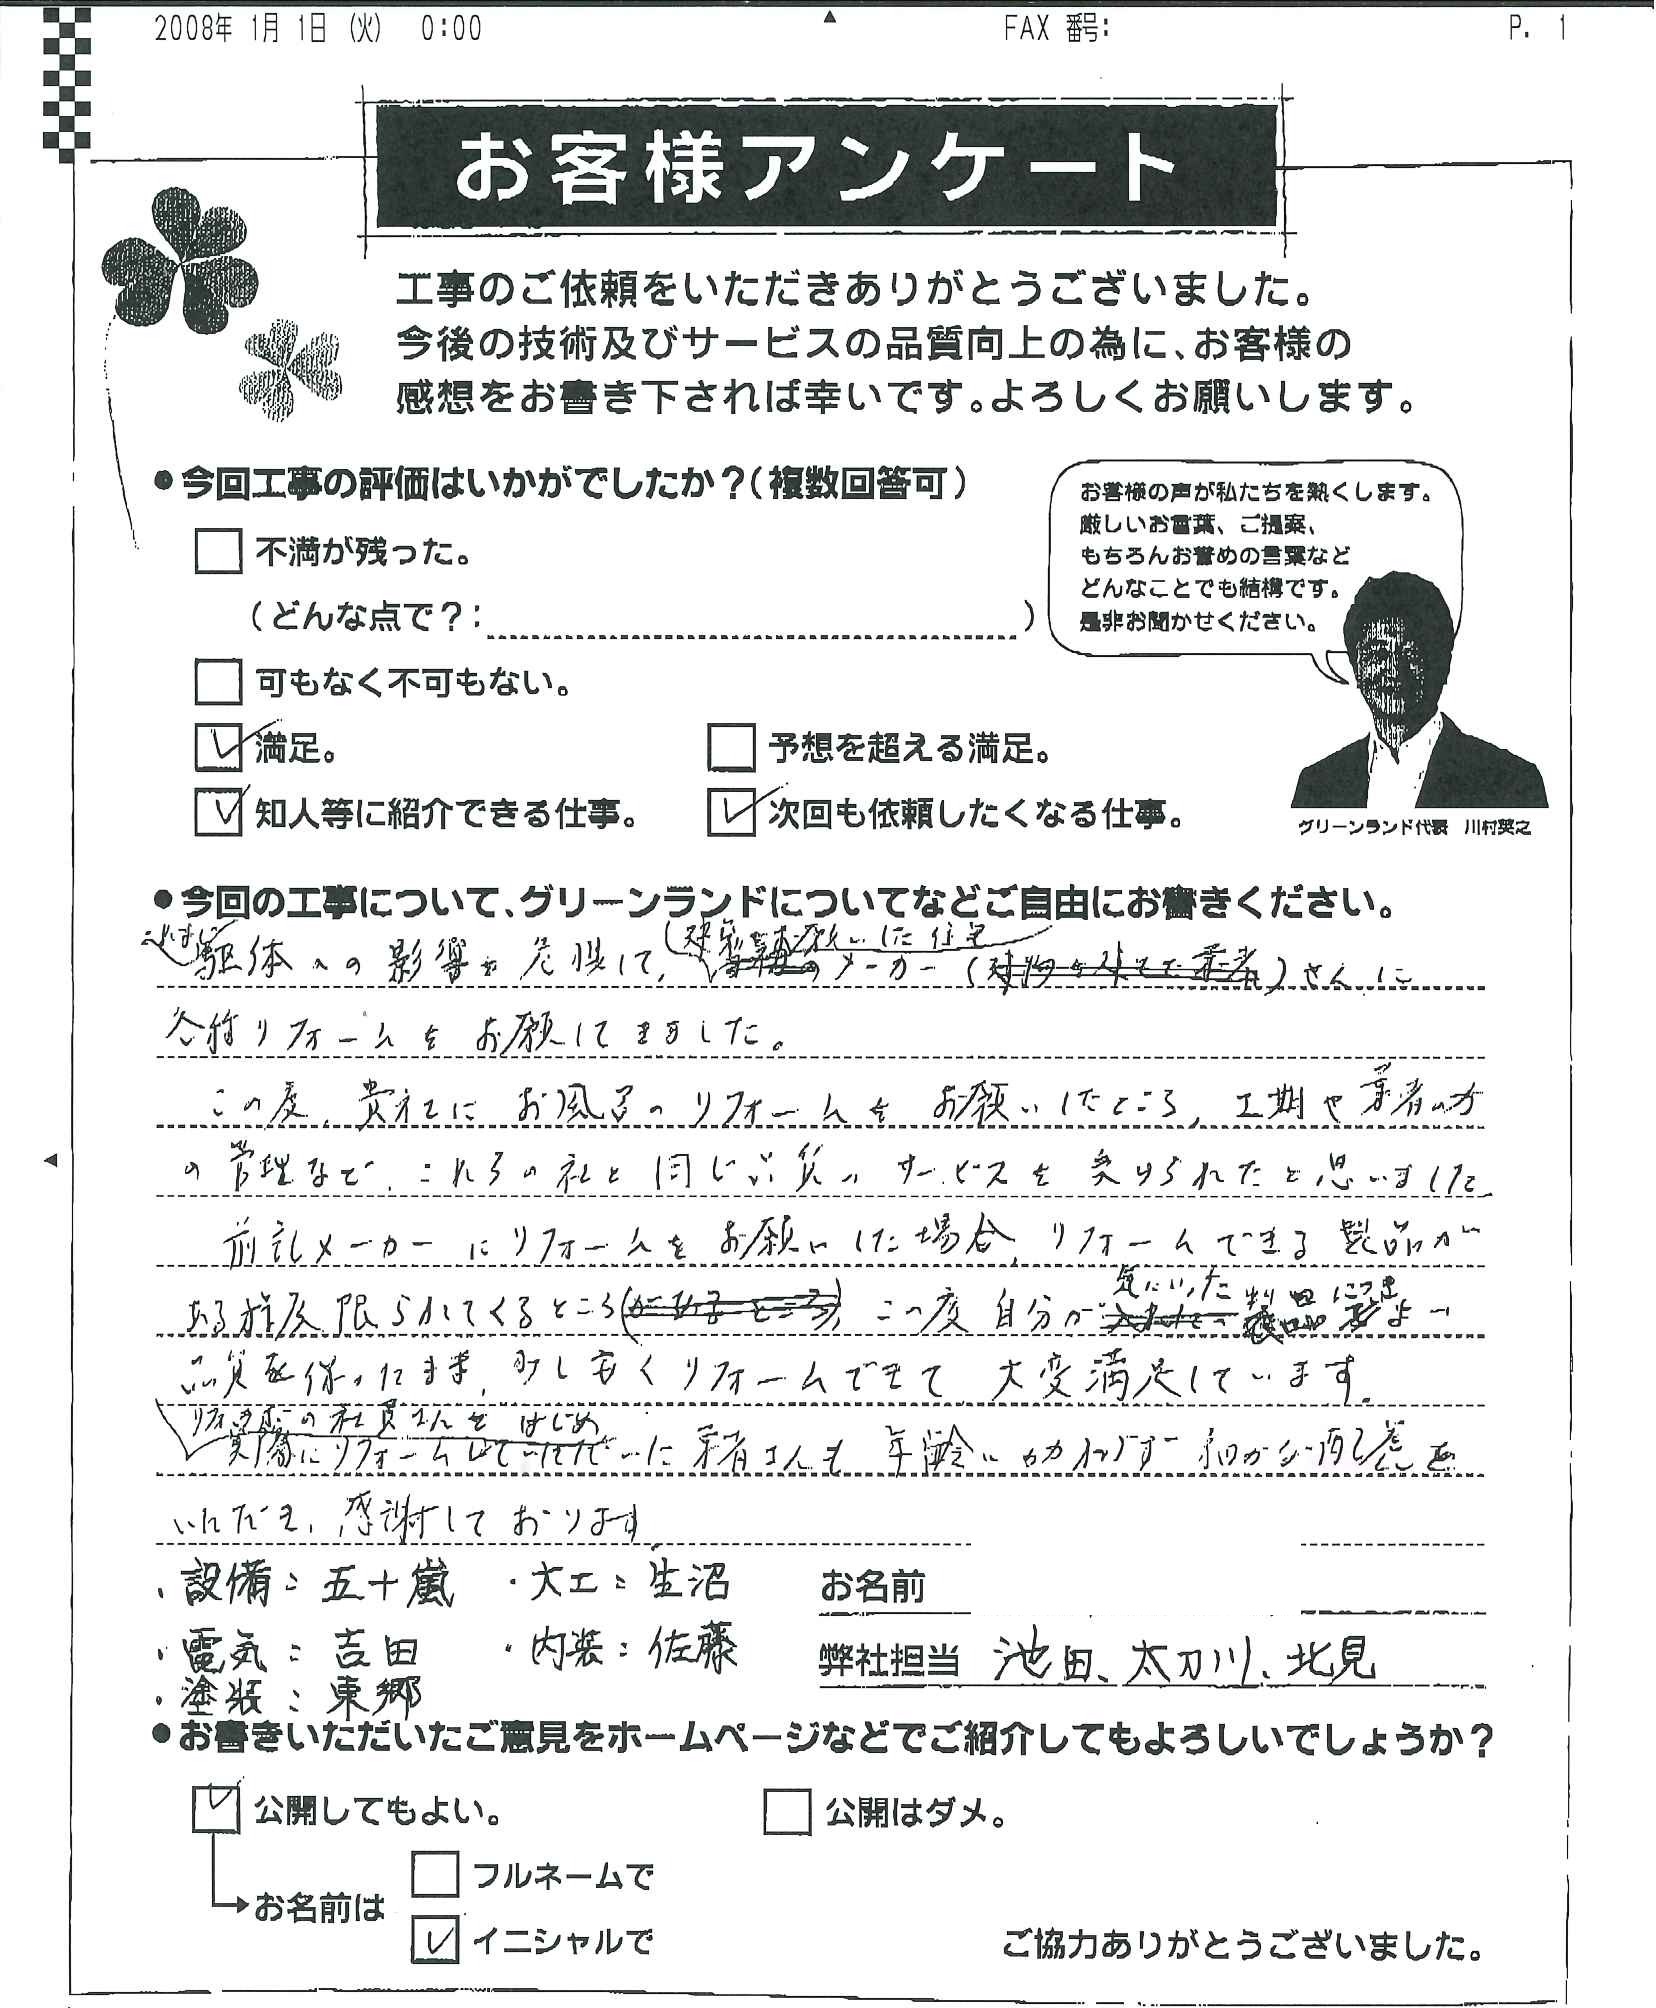 2008年 1月 1日 (火) 0:00 FAX 番号: P. 1
お客様アンケート
工事のご依頼をいただきありがとうございました。
今後の技術及びサービスの品質向上の為に、お客様の
感想をお書き下されば幸いです。よろしくお願いします。
●今回工事の評価はいかがでしたか？(複数回答可)
不満が残った。
(どんな点で？: )
可もなく不可もない。
満足。 予想を超える満足。
知人等に紹介できる仕事。 次回も依頼したくなる仕事。
お客様の声が私たちを熱くします。
厳しいお言葉、ご提案、
もちろんお誉めの言葉など
どんなことでも結構です。
是非お聞かせください。
グリーンランド代表 川村英之
●今回の工事について、グリーンランドについてなどご自由にお書きください。
これまで 建築をお願いした住宅
駆体への影響を危惧して、メーカーさんに
各種リフォームをお願してきました。
この度、貴社にお風呂のリフォームをお願いしたところ、工期や業者の方
の管理など、これらの社と同じ品質のサービスを受けられたと思いました
前記メーカーにリフォームをお願いした場合、リフォームできる製品が
ある程度限られてくるところ この度 自分が 気にいった 製品
品質を保ったまま、少し安くリフォームできて、大変満足しています。
の社員さんをはじめ
実際にリフォームしていただいた業者さんも年齢にかかわらず細かな配慮を
いただき、感謝しております
・設備：五十嵐 ・大工：生沼
・電気：吉田 ・内装：佐藤
・塗装：東郷
お名前
弊社担当 池田、太刀川、北見
●お書きいただいたご意見をホームページなどでご紹介してもよろしいでしょうか？
公開してもよい。 公開はダメ。
お名前は フルネームで
イニシャルで
ご協力ありがとうございました。